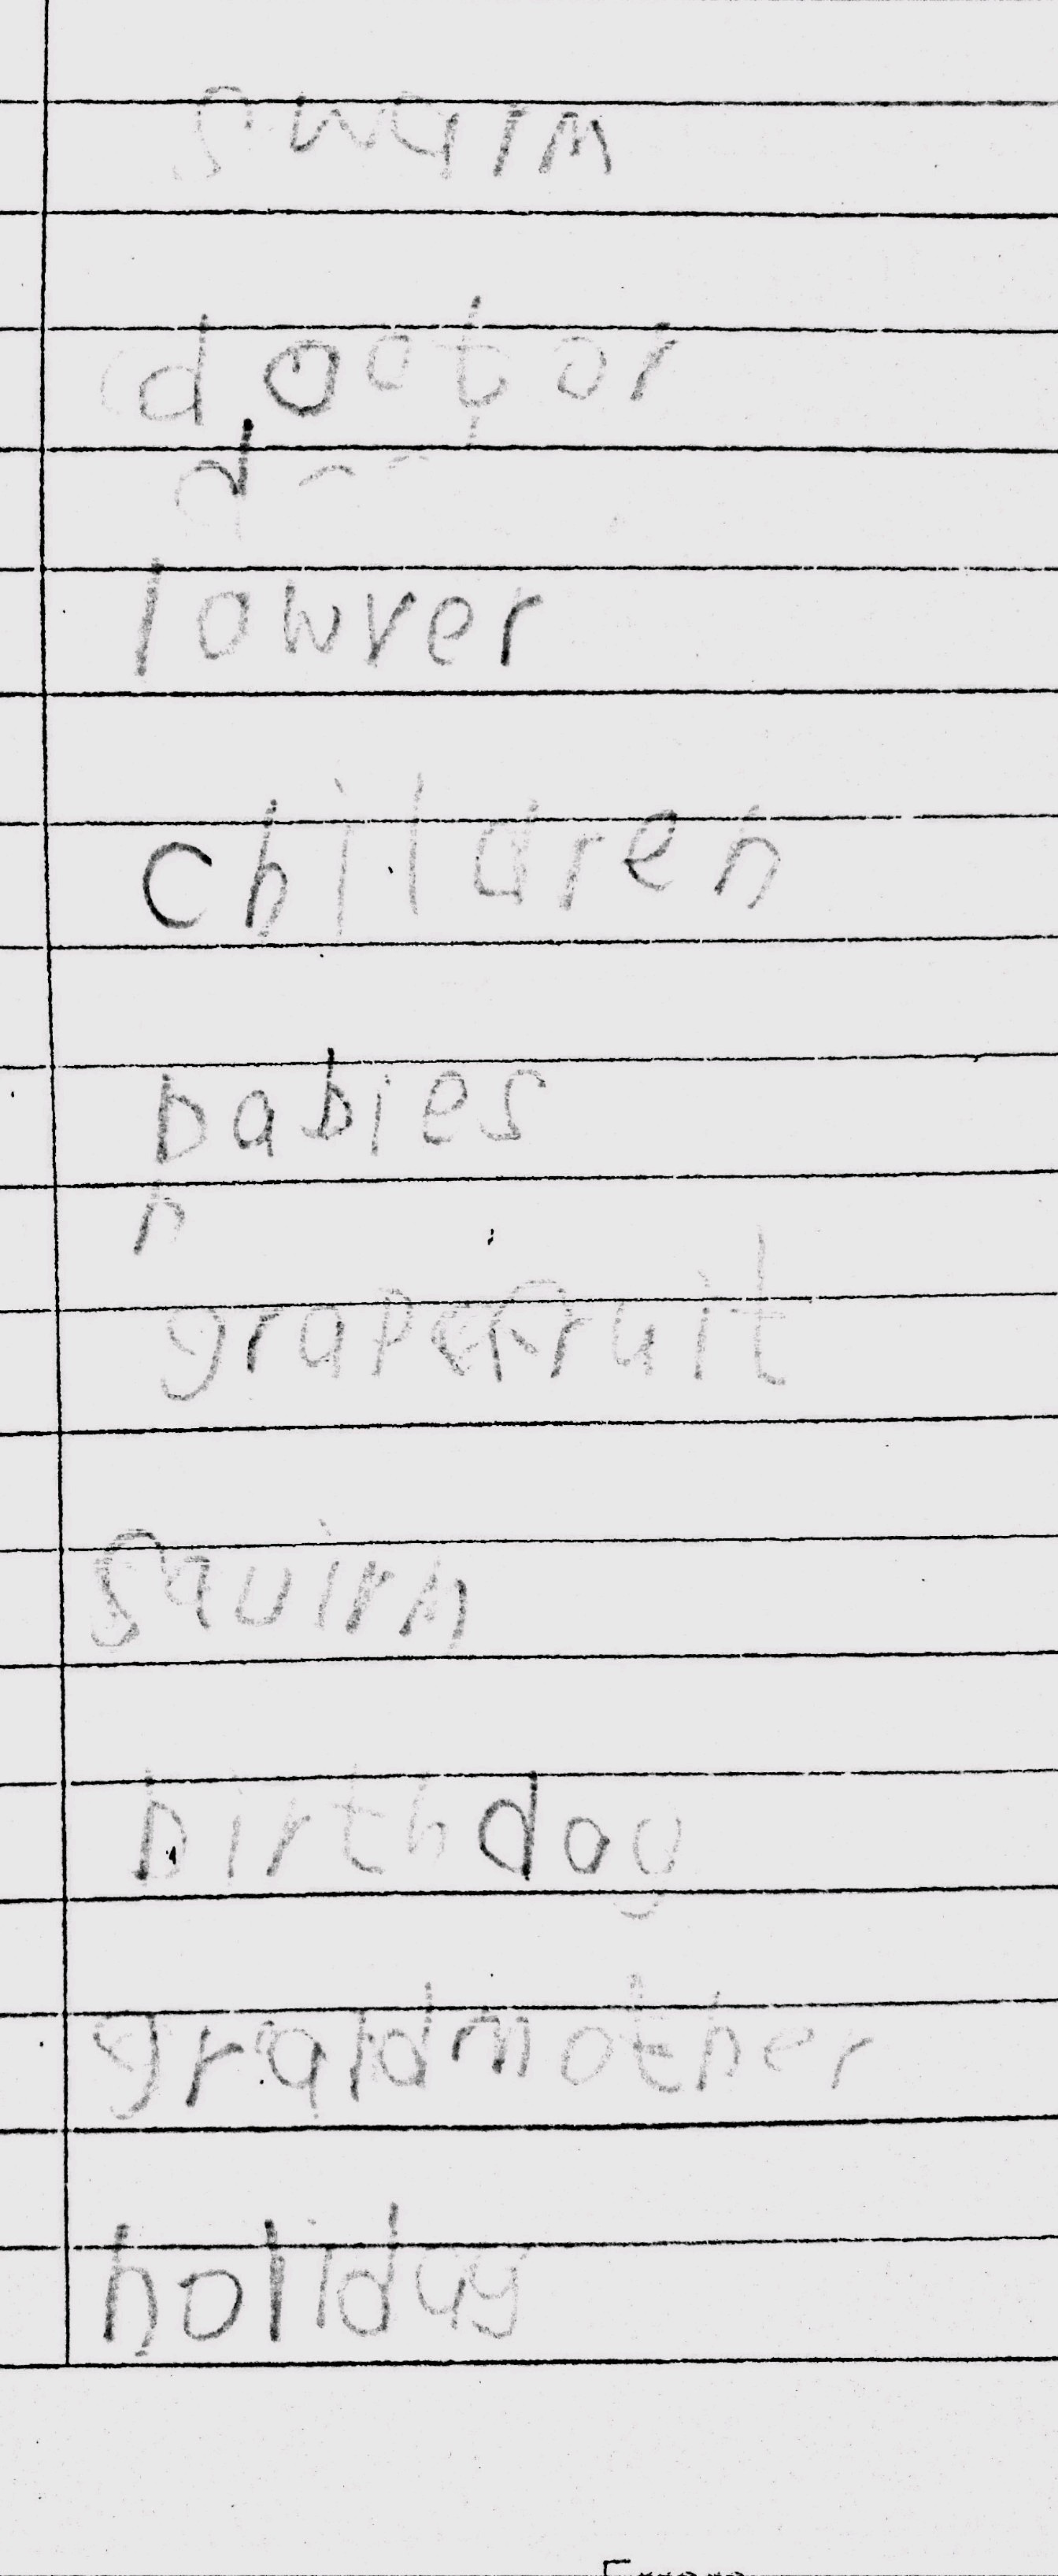 swarm
doctor
d
lowrer
children
babies
b
grapefruit
squirm
birthday
grandmother
holiday